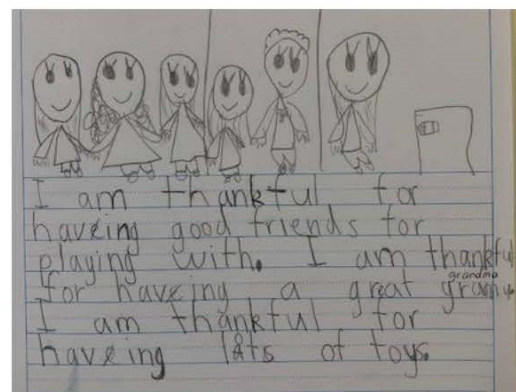 I am thankful for
haveing good friends for
playing with. I am thankful
grandma
for haveing a great gramy.
I am thankful for
haveing lots of toys.